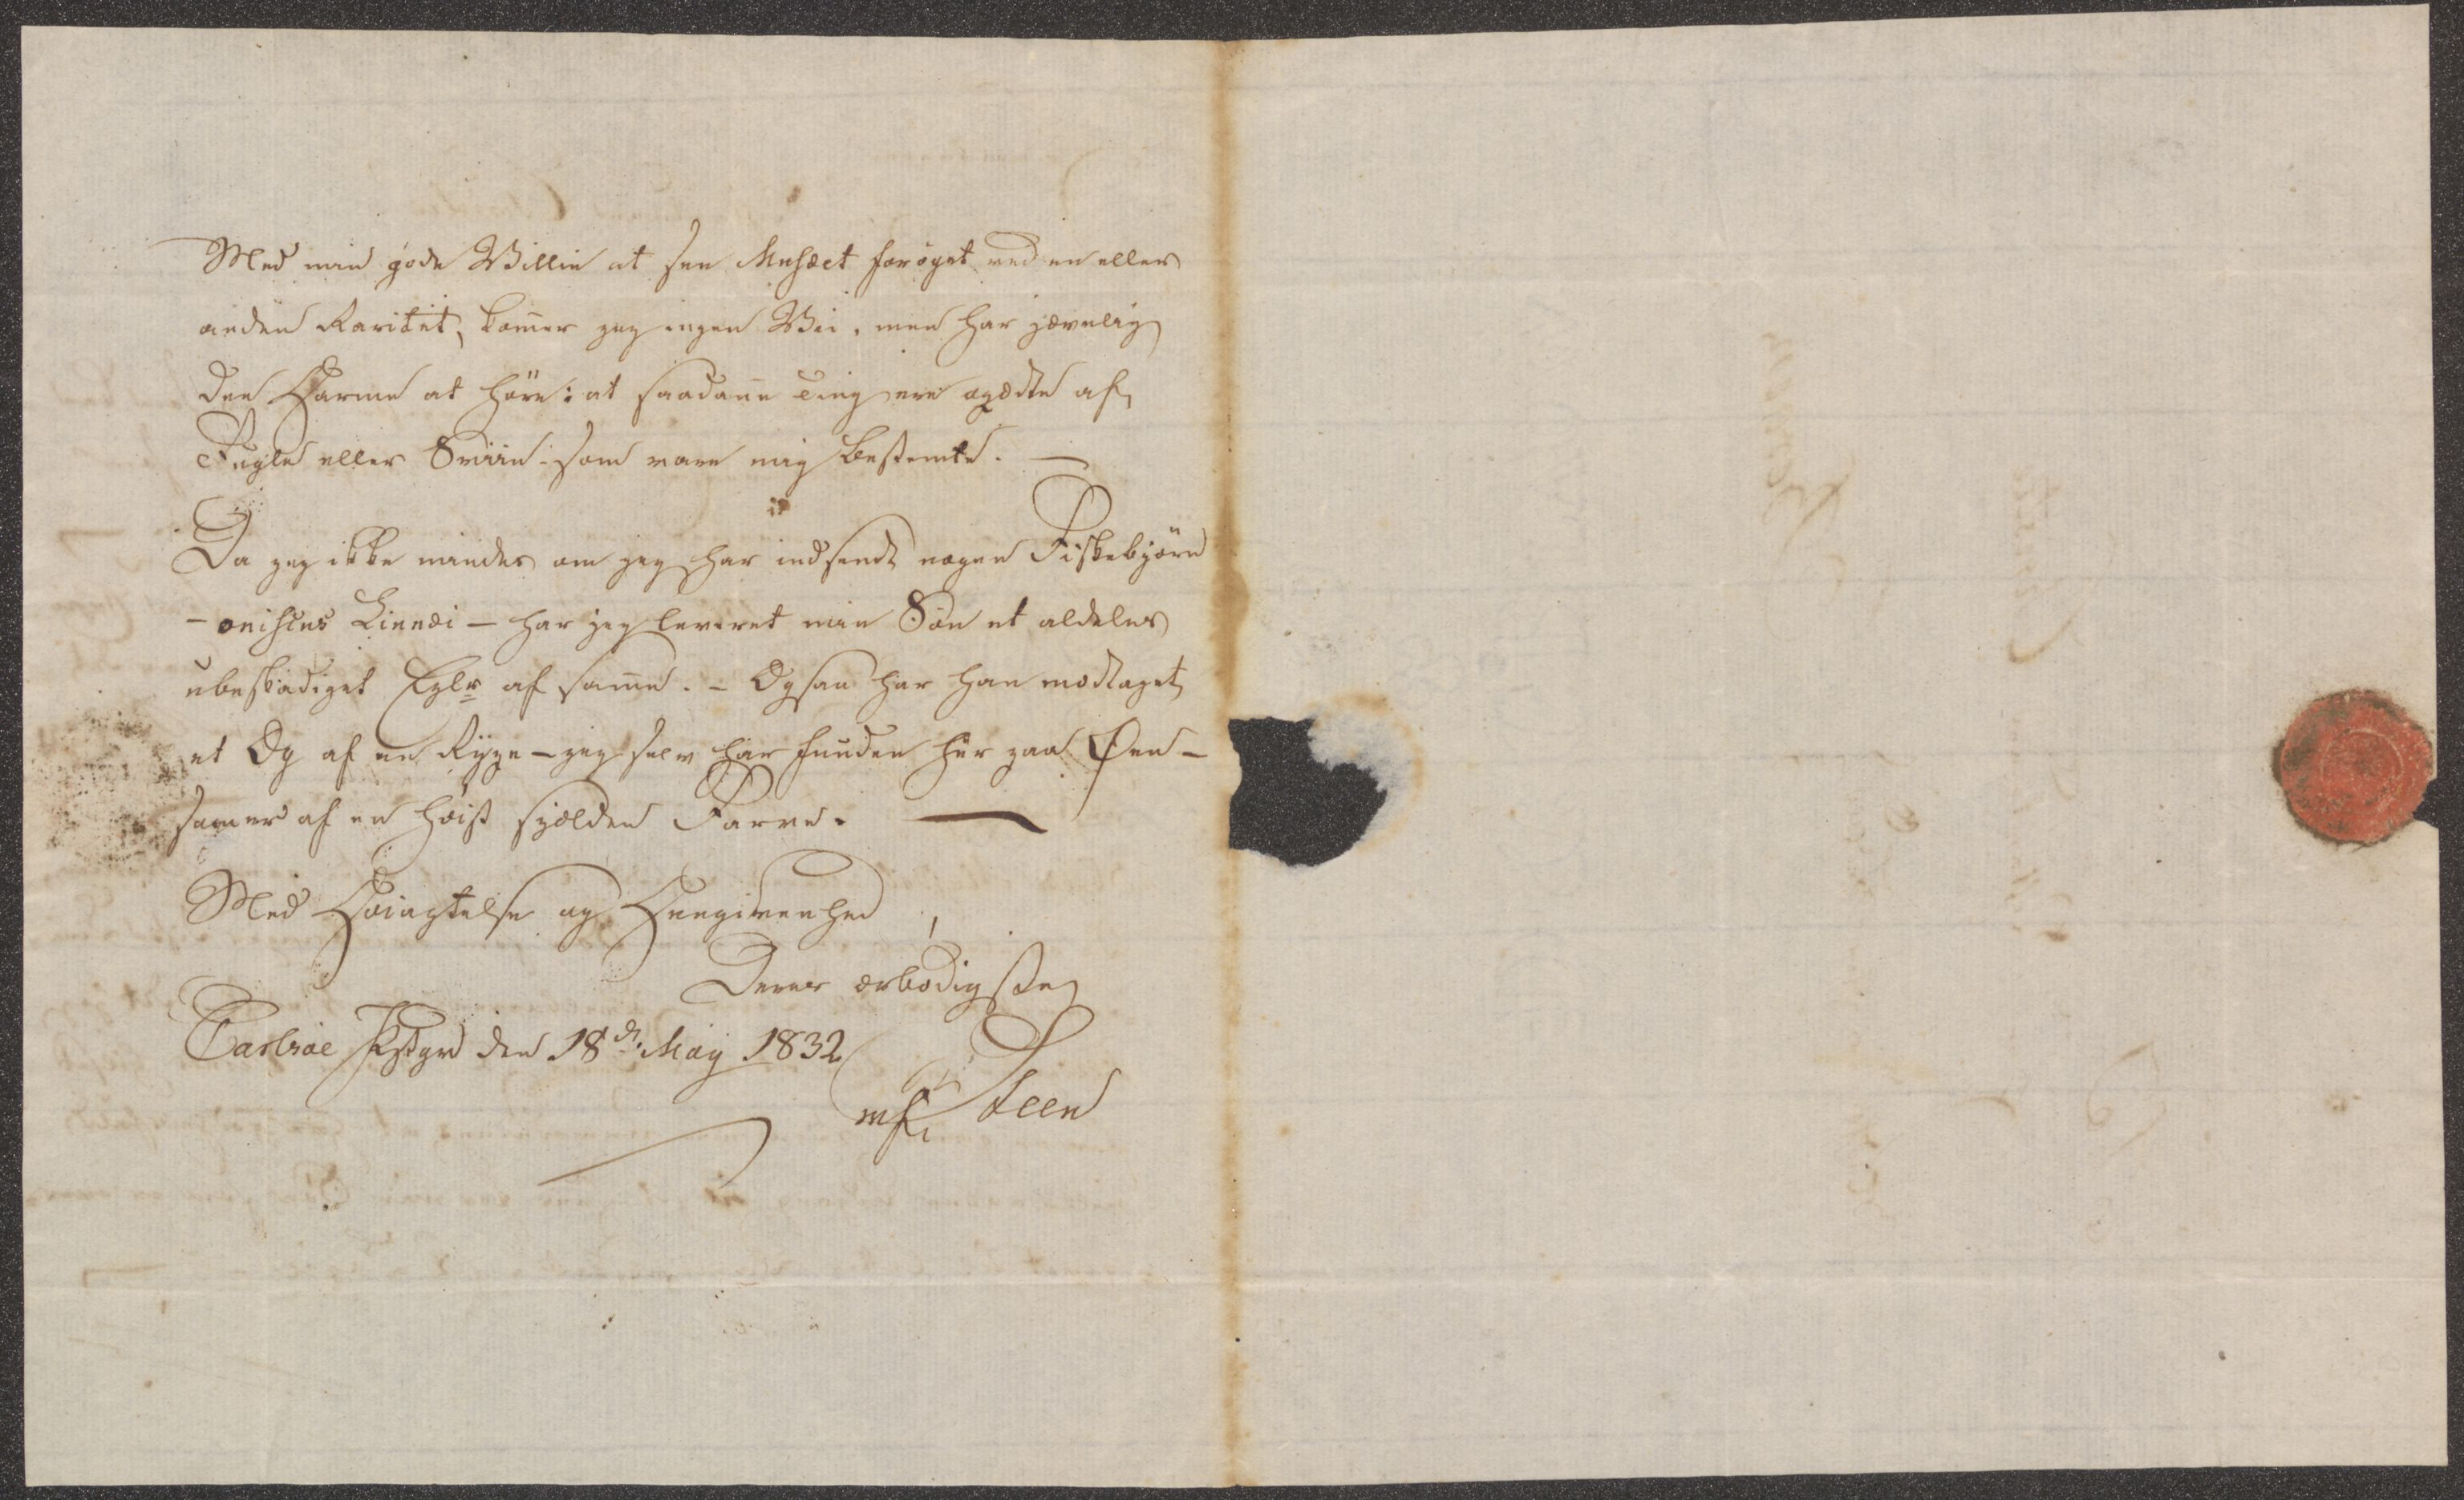 Med min gode Billie at see Musæet forøget ved en eller
anden Raritet, kom̅er jeg ingen Vei, men har jævnlig
den Harme at høre: at saadanne Ting ere ogædte af
Fugle eller Sviin - som vare mig bestemte. —
Da jeg ikke mindes om jeg har indsendt nogen Fiskebjørn
- oniscus Linnæi - har jeg leveret min Søn et aldeles
ubeskadiget Explr af sam̅e. - Ogsaa har han modtaget
et Æg af en Rype - jeg selv har funden her paa Øen -
som er af en høist sjelden Farve. —
Med Høiagtelse og Hengivenhed
Deres ærbødigste
Carlsøe Pstgrd den 18de May 1832
Steen